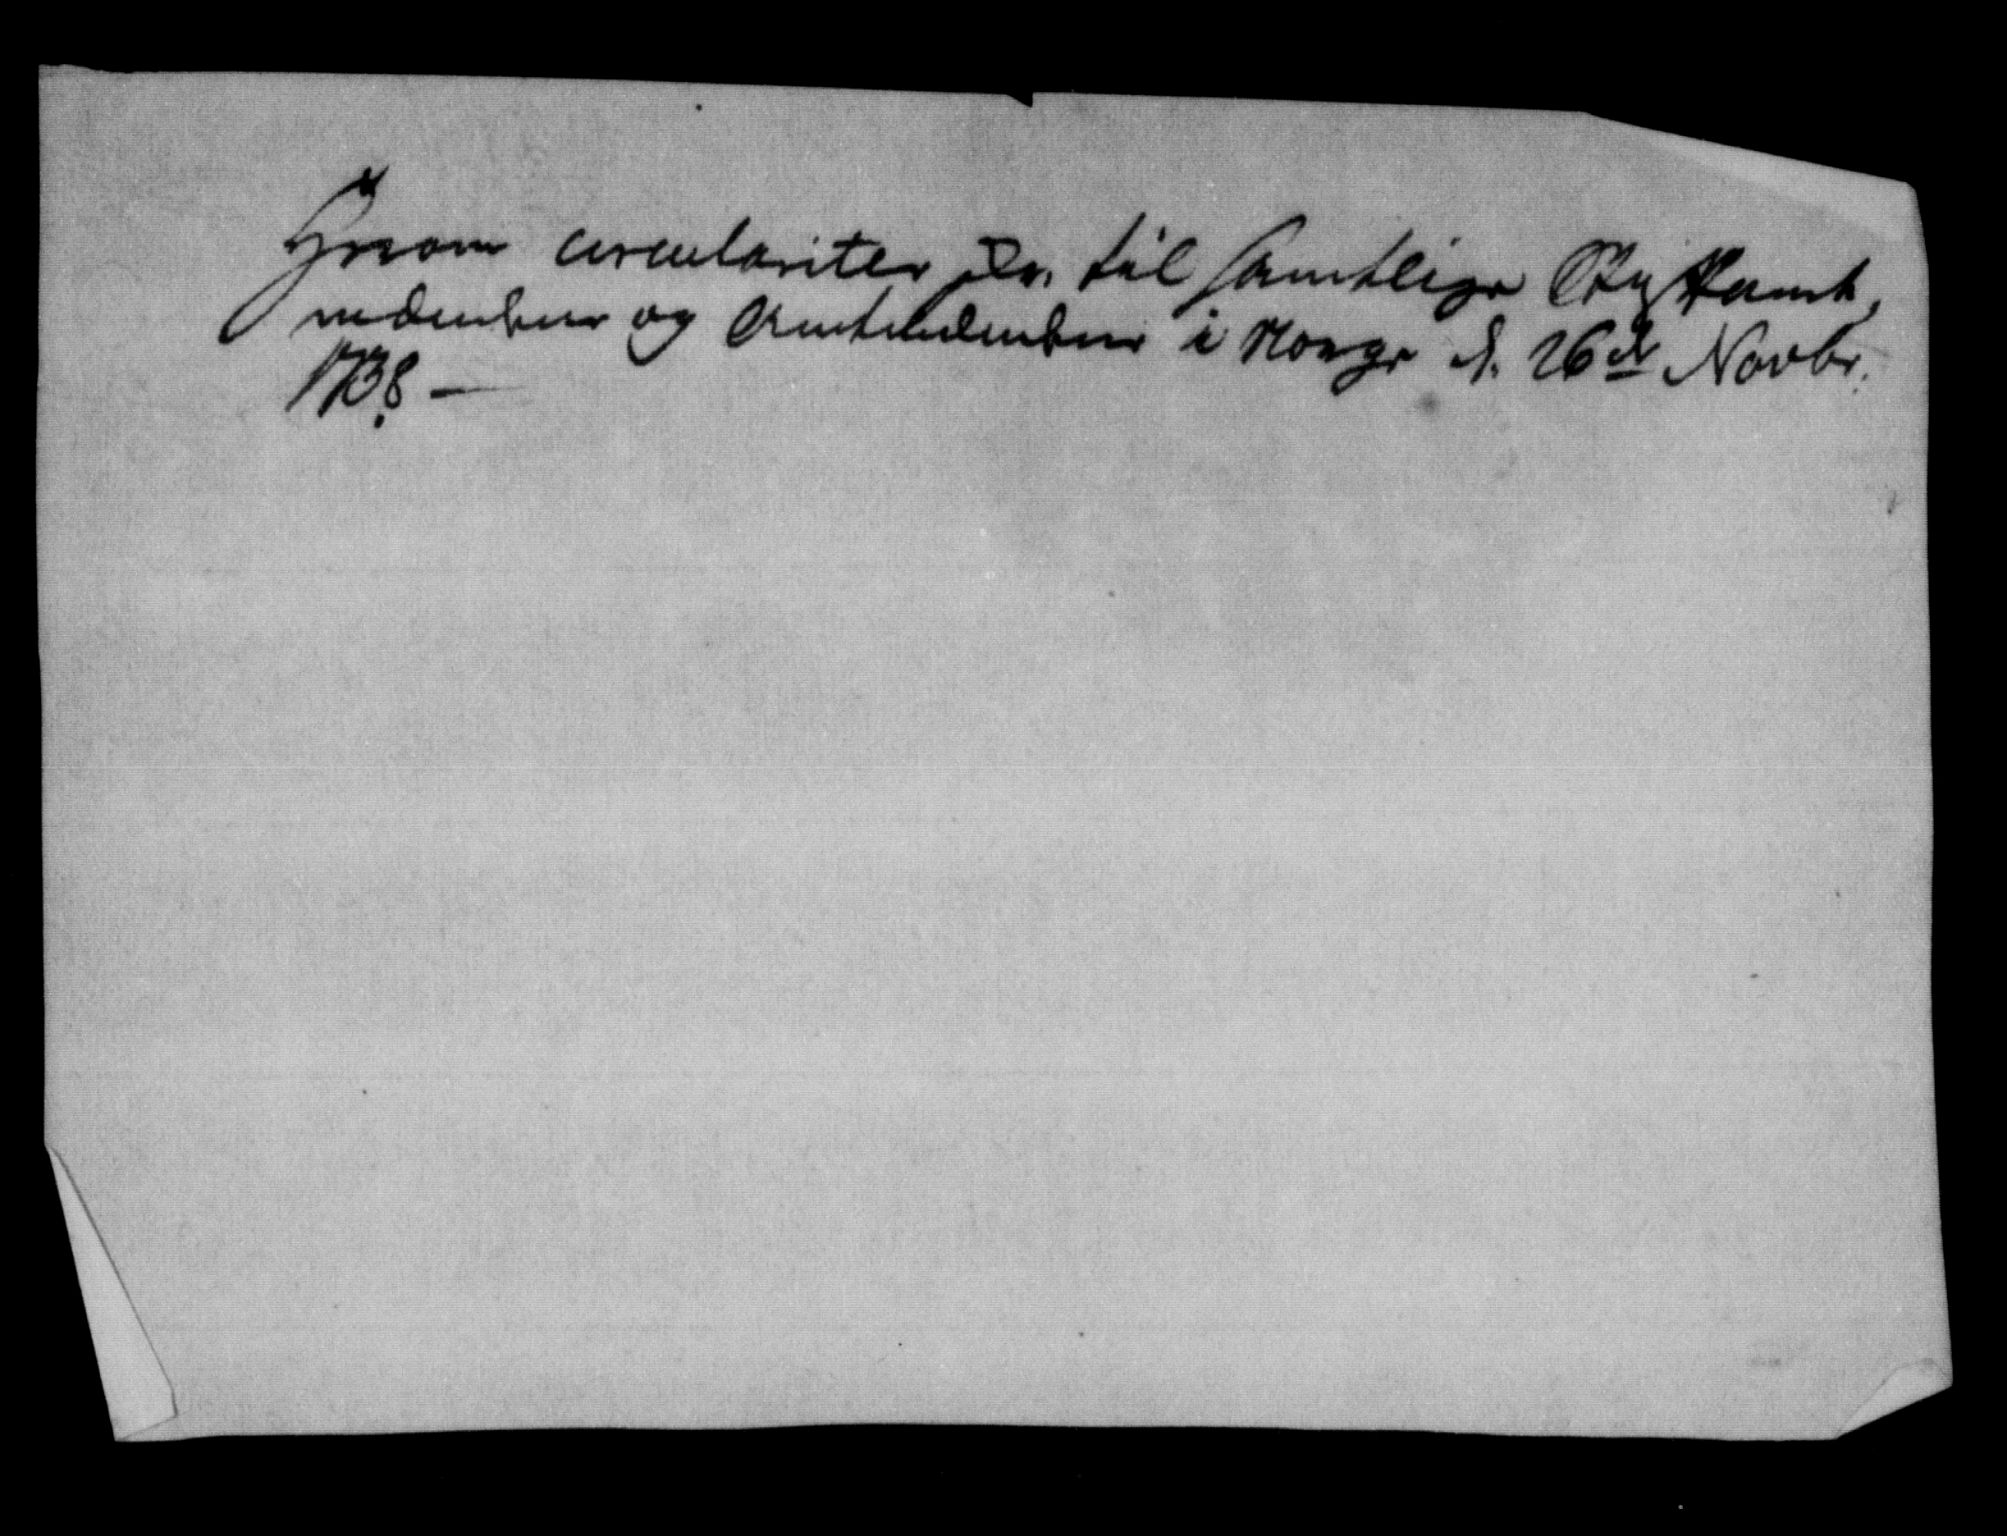 Hvorom circulariter skr. til samtlige Stiftamt,
mændene og Amtmændene i Norge d. 26de Novbr.
1738 —